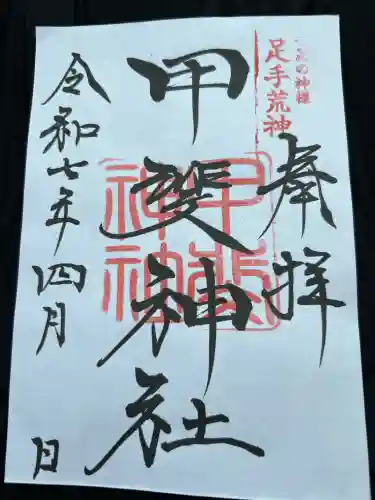 の神様
足手荒神
奉拝
甲斐神社
甲斐神社
令和七年四月 日